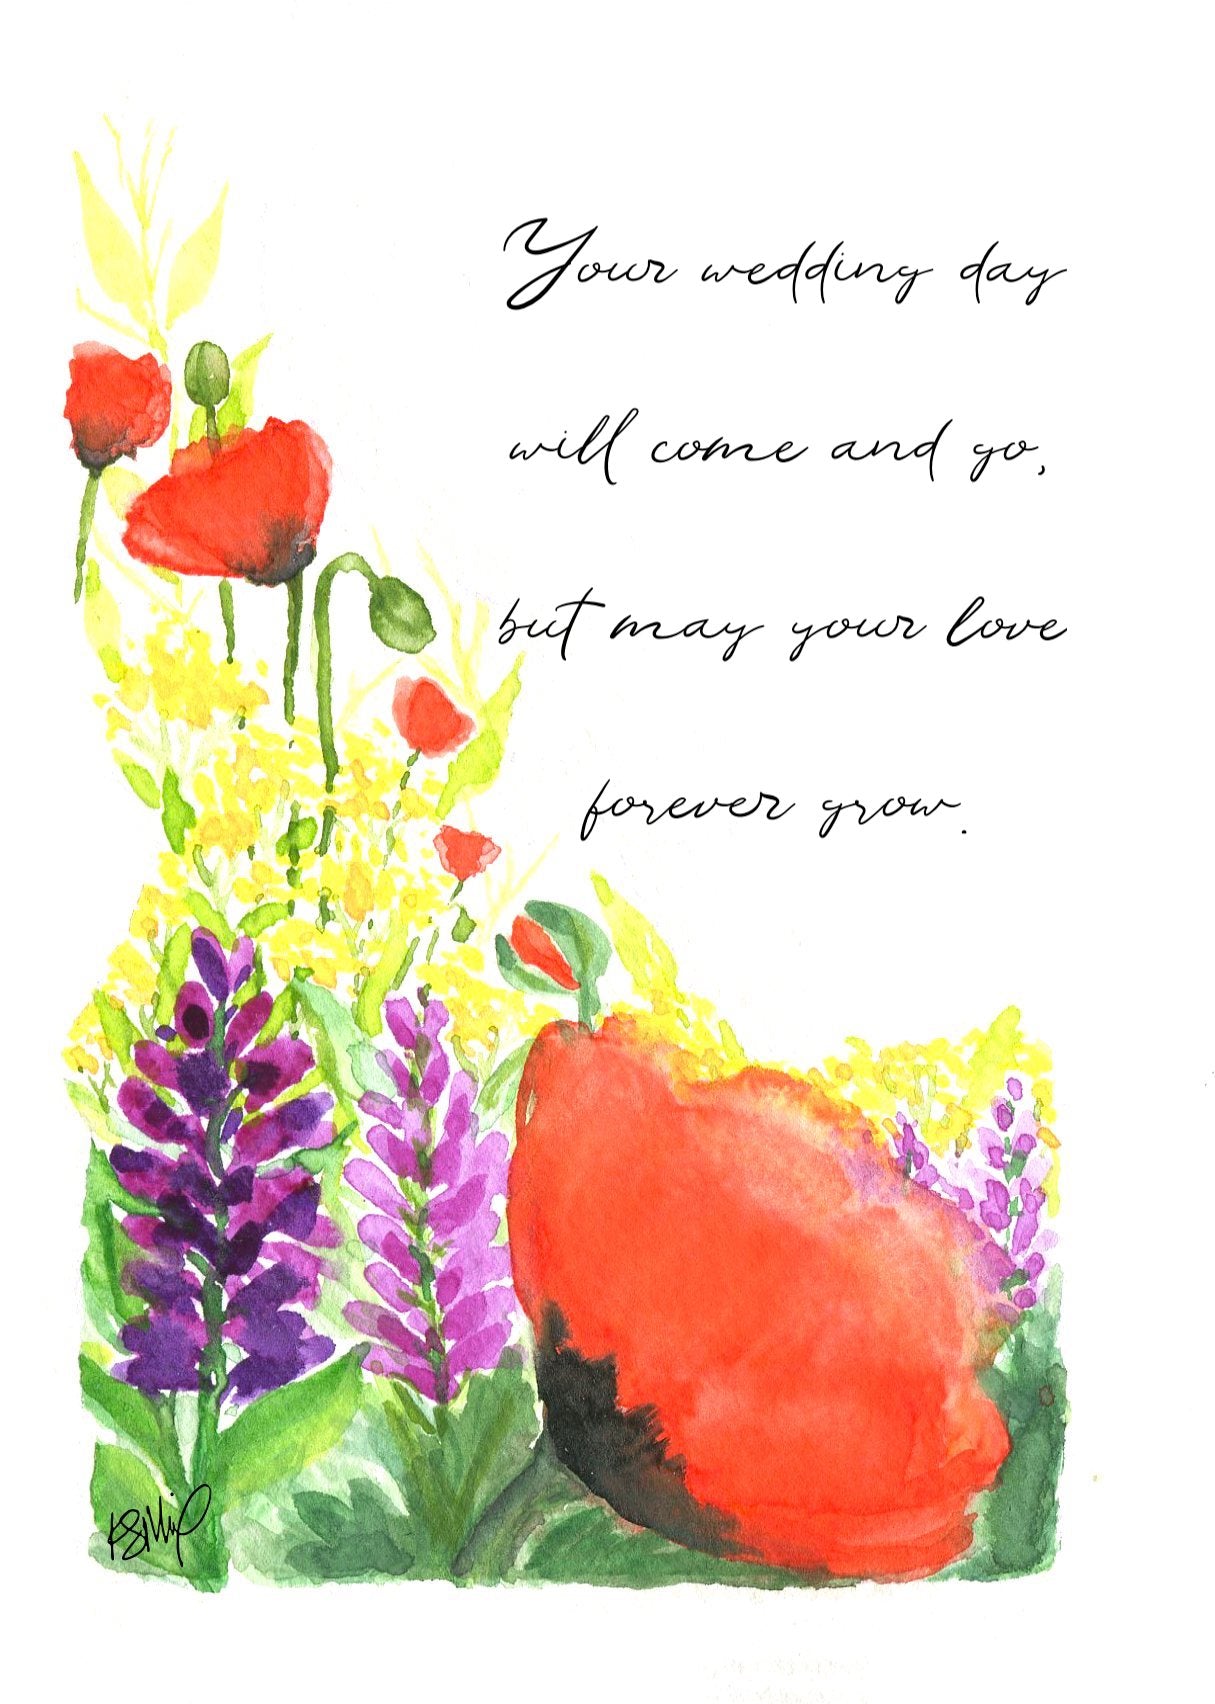 Your wedding day
will come and go,
but may your love
forever grow.